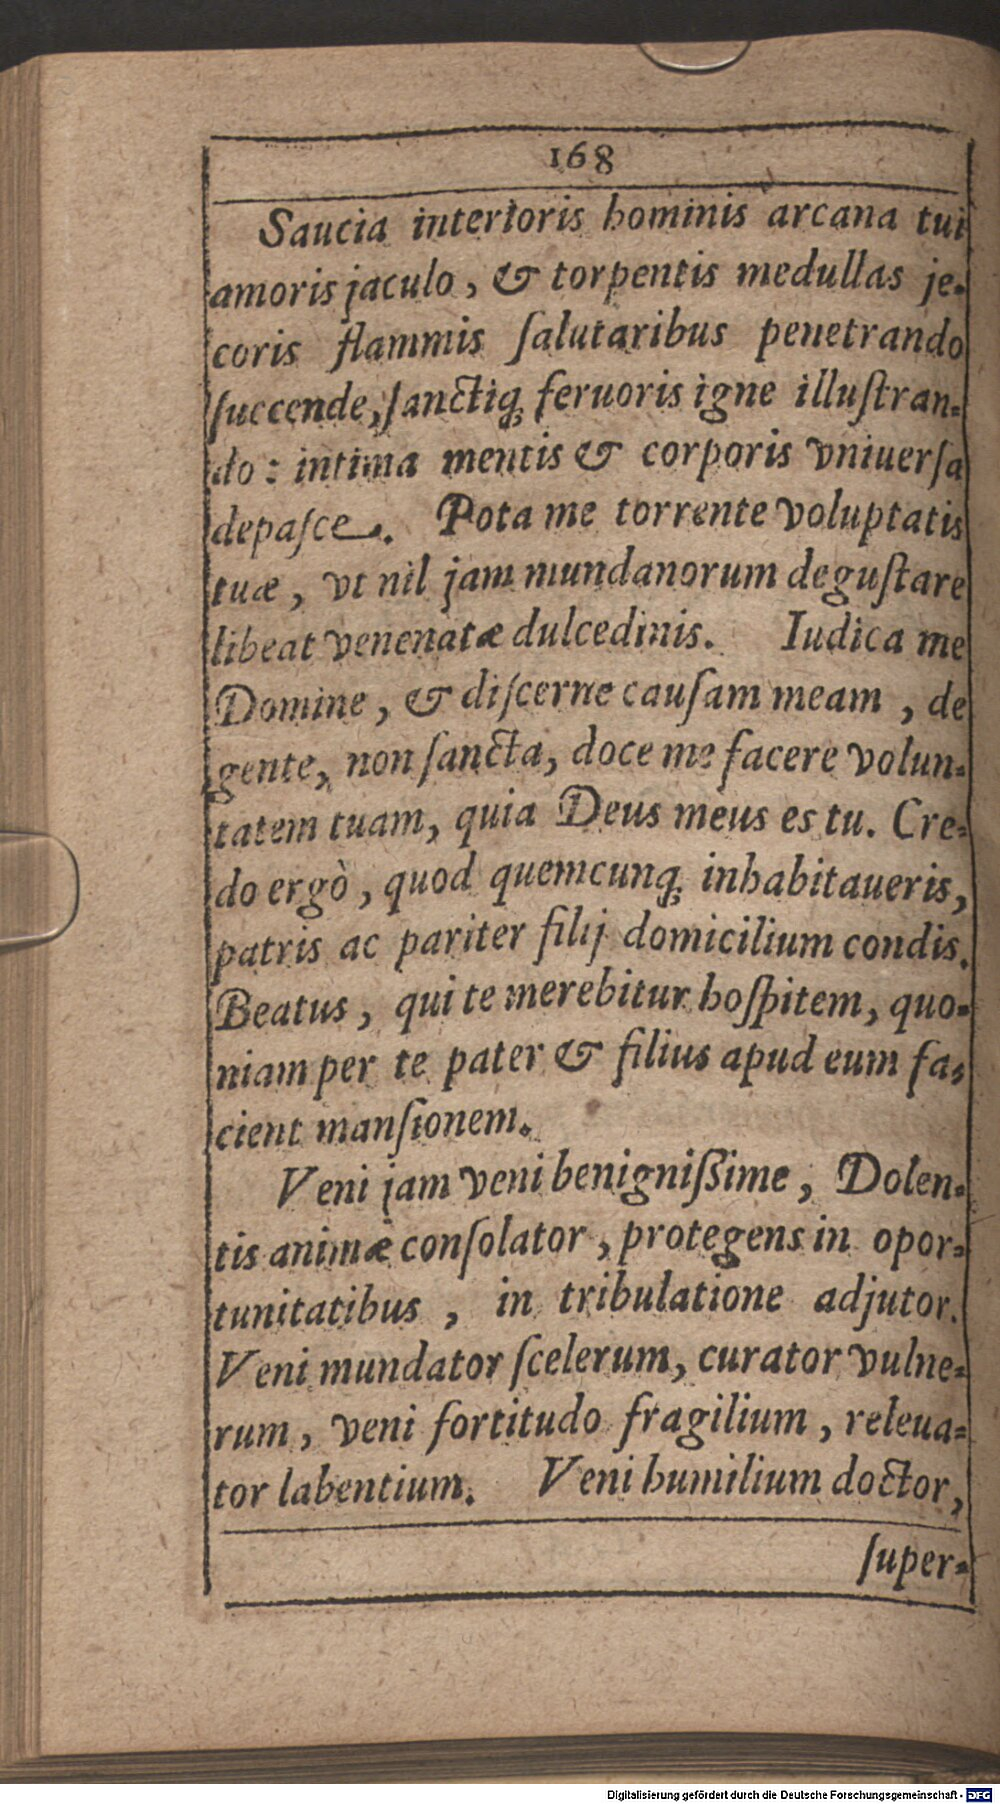 168
Saucia interioris hominis arcana tui
amoris jaculo, & torpentis medullas je-
coris flammis ſalutaribus penetrando
ſuccende, ſanctiq́; feruoris igne illuſtran-
do: intima mentis & corporis vniuerſa
depaſce. Pota me torrente voluptatis
tuæ, vt nil jam mundanorum deguſtare
libeat venenatæ dulcedinis. Iudica me
Domine, & diſcerne cauſam meam, de
gente, non ſancta, doce me facere volun-
tatem tuam, quia Deus meus es tu. Cre-
do ergò, quod quemcunq; inhabitaueris,
patris ac pariter filij domicilium condis.
Beatus, qui te merebitur hoſpitem, quo-
niam per te pater & filius apud eum fa-
cient manſionem.
Veni jam veni benigniſſime, Dolen-
tis animæ conſolator, protegens in opor-
tunitatibus, in tribulatione adjutor.
Veni mundator ſcelerum, curator vulne-
rum, veni fortitudo fragilium, releua-
tor labentium. Veni humilium doctor,
ſuper-
Digitalisierung gefördert durch die Deutsche Forschungsgemeinschaft - DFG